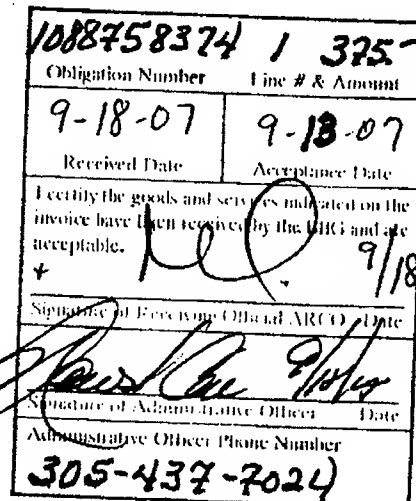 1088758374 1 375.-
Obligation Number Line # & Amount
9-18-07 9-18-07
Received Date Acceptance Date
I certify the goods and services indicated on the
invoice have been received by the and are
acceptable.
9/18
Signature of Receiving Official ARCO Date
Signature of Administrative Officer Date
Administrative Officer Phone Number
305-437-7024